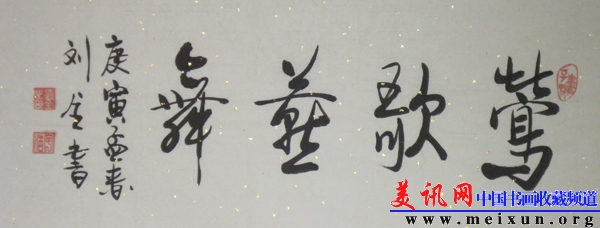 鶯歌燕舞
庚寅孟春
刘金書
美讯网 中国书画收藏频道
www.meixun.org